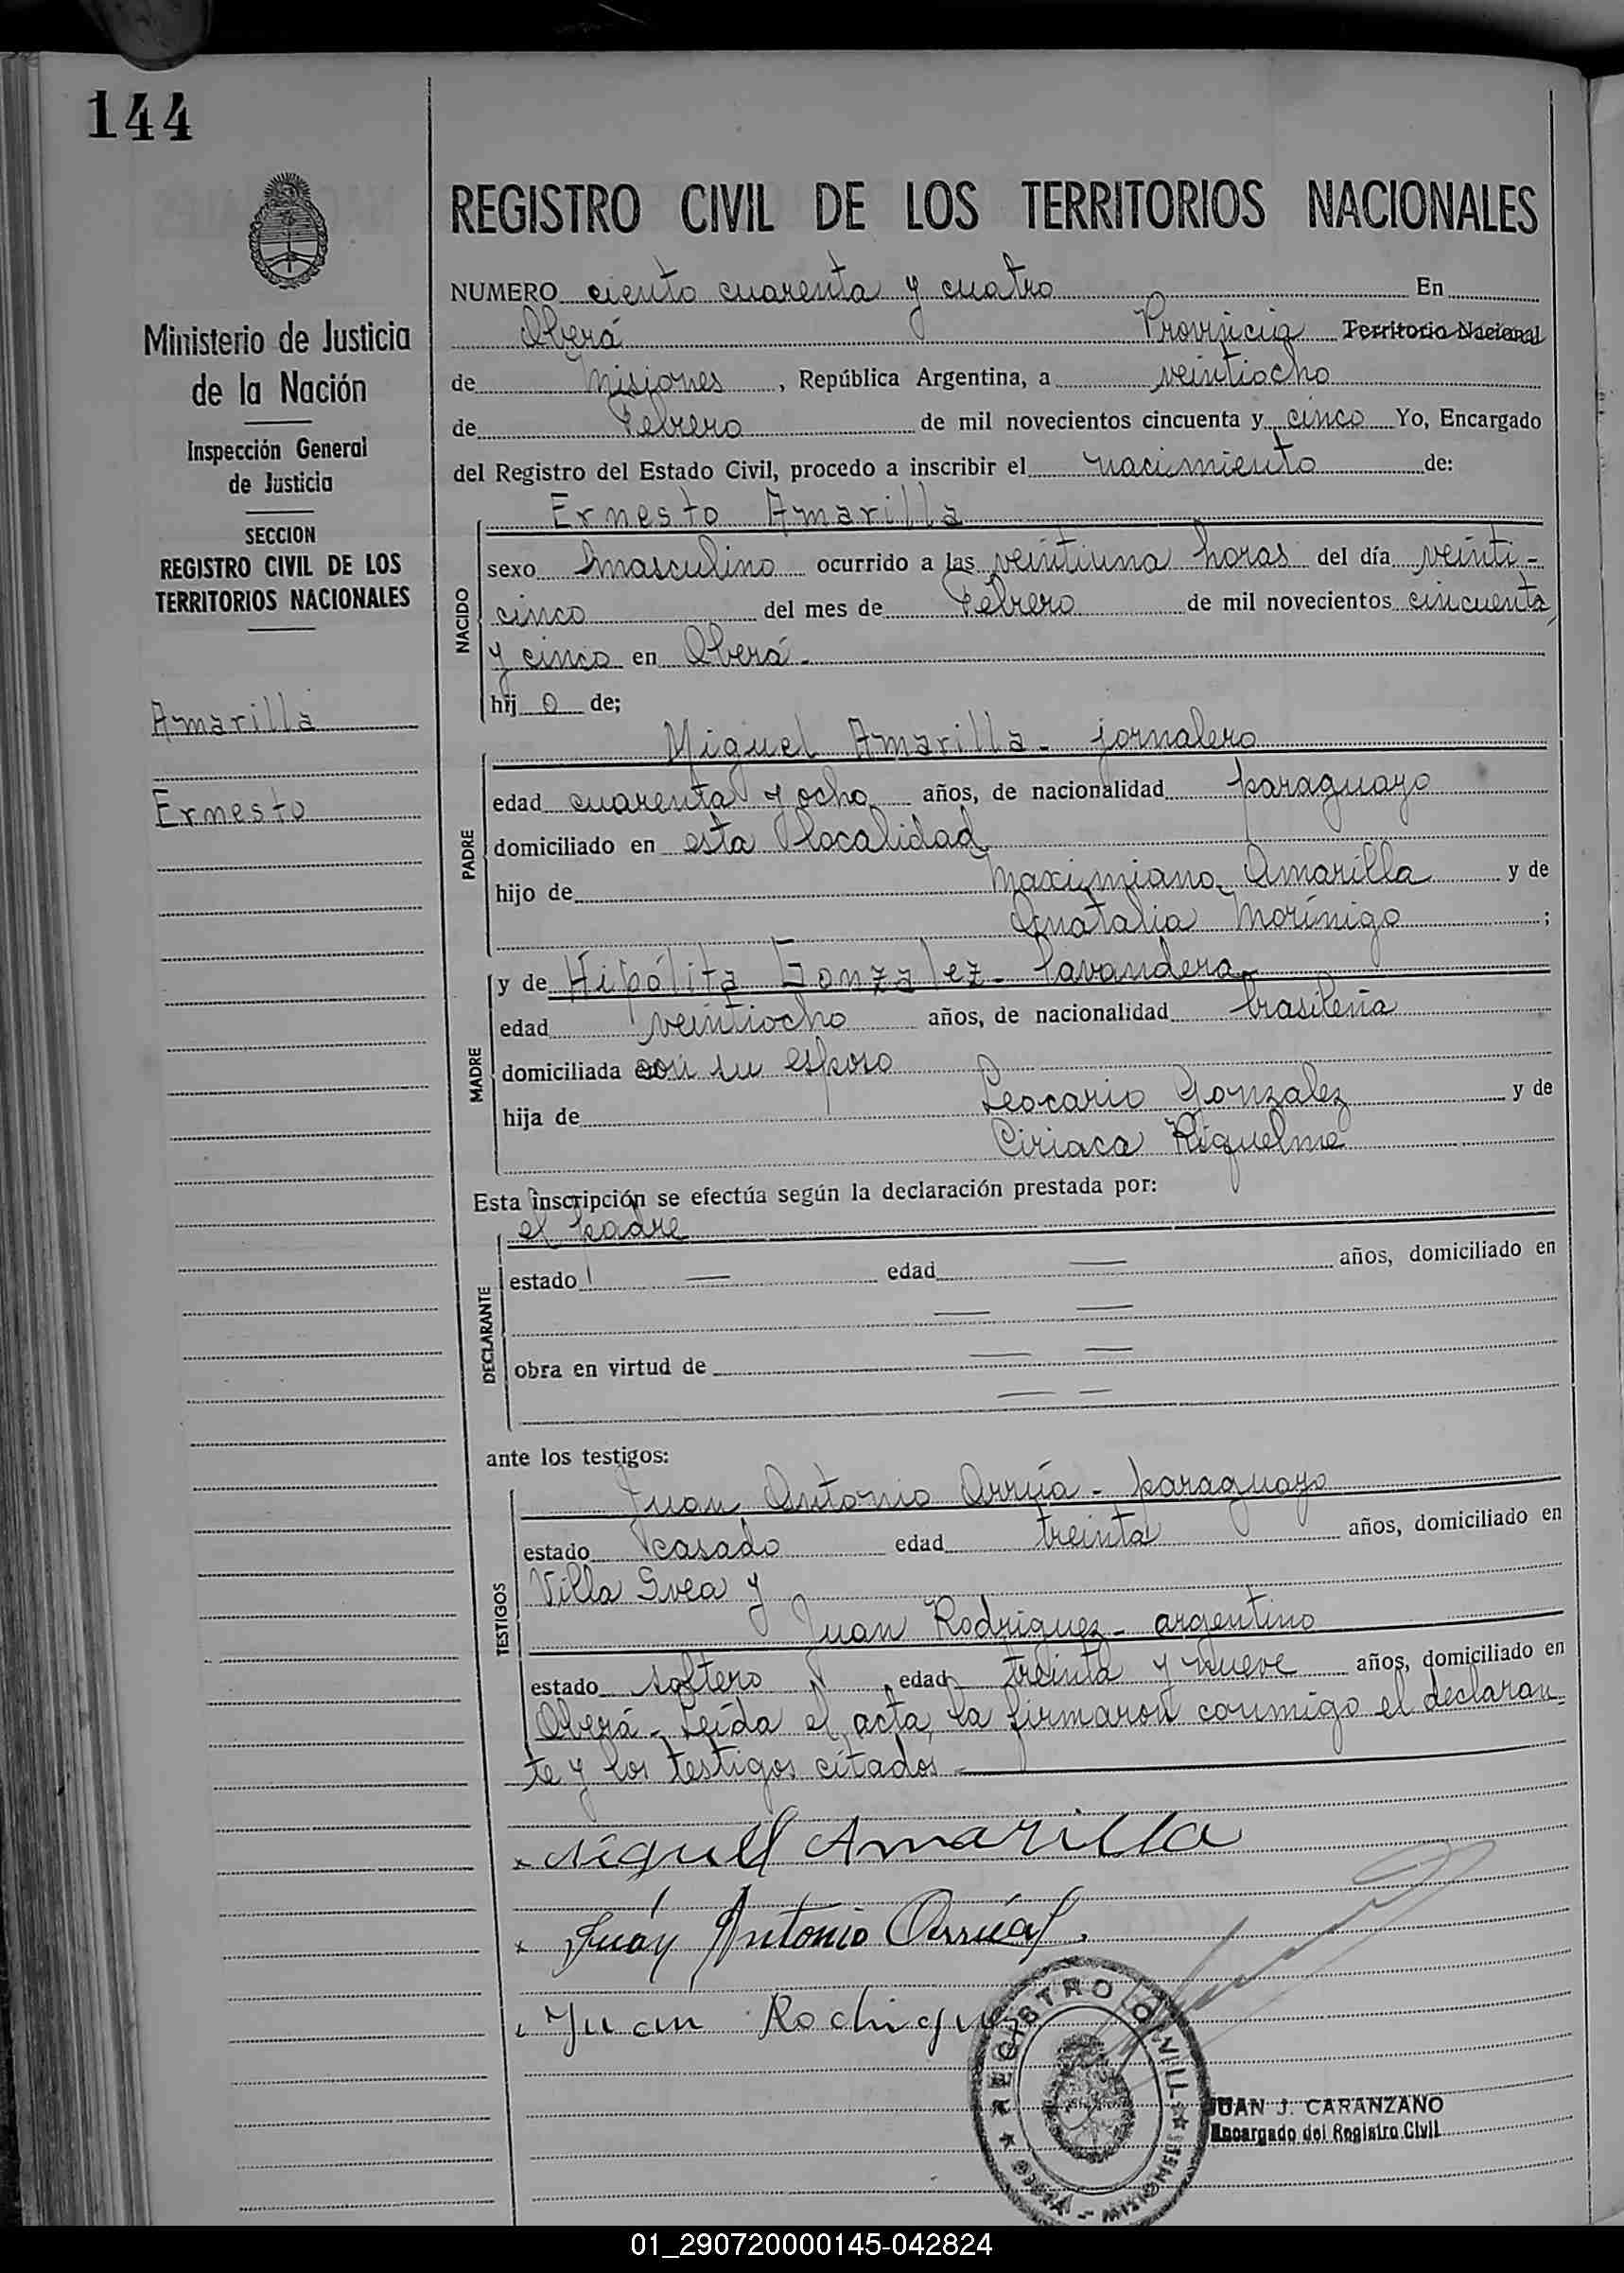 144
REGISTRO CIVIL DE LOS TERRITORIOS NACIONALES
Ministerio de Justicia
de la Nación
Inspección General
de Justicia
SECCION
REGISTRO CIVIL DE LOS
TERRITORIOS NACIONALES
Amarilla
Ernesto
NUMERO ciento cuarenta y cuatro En
Oberá Provincia Territorio Nacional
de Misiones, República Argentina, a veintiocho
de Febrero de mil novecientos cincuenta y cinco Yo, Encargado
del Registro del Estado Civil, procedo a inscribir el nacimiento de:
NACIDO
Ernesto Amarilla
sexo masculino ocurrido a las veintiuna horas del día veinti-
cinco del mes de Febrero de mil novecientos cincuenta
y cinco en Oberá.
hij o de;
PADRE
Miguel Amarilla - jornalero
edad cuarenta y ocho años, de nacionalidad paraguayo
domiciliado en esta localidad
hijo de Maximiano Amarilla y de
Gnatalia Morínigo ;
MADRE
y de Hipólita Gonzalez - lavandera
edad veintiocho años, de nacionalidad brasileña
domiciliada con su esposo
hija de Leocario Gonzalez y de
Ciriaca Riquelme
Esta inscripción se efectúa según la declaración prestada por:
DECLARANTE
el padre
estado — edad — años, domiciliado en
— —
obra en virtud de — —
— —
ante los testigos:
TESTIGOS
Juan Antonio Arrúa - paraguayo
estado casado edad treinta años, domiciliado en
Villa Svea y
Juan Rodriguez - argentino
estado soltero edad treinta y nueve años, domiciliado en
Oberá - Leída el acta, la firmaron conmigo el declaran-
te y los testigos citados -
x Miguel Amarilla
x Juan Antonio Arrúa
x Juan Rodriguez
REGISTRO CIVIL
OBERÁ - MISIONES
JUAN J. CARANZANO
Encargado del Registro Civil
01_290720000145-042824